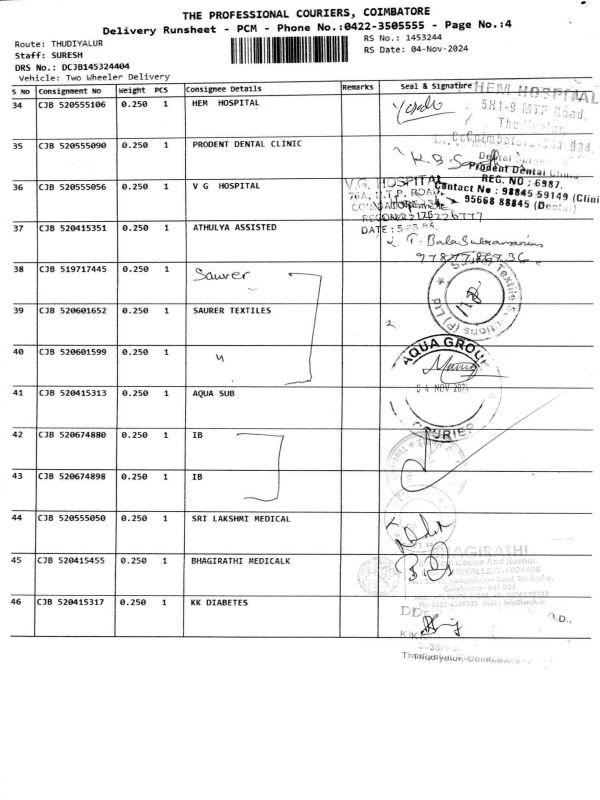 THE PROFESSIONAL COURIERS, COIMBATORE
Delivery Runsheet - PCM - Phone No.:0422-3505555 - Page No.:4
Route: THUDIYALUR
RS No.: 1453244
Staff: SURESH
RS Date: 04-Nov-2024
DRS No.: DCJB145324404
Vehicle: Two Wheeler Delivery
S No Consignment No Weight PCS Consignee Details Remarks Seal & Signature
HEM HOSPITAL
34 CJB 520555106 0.250 1 HEM HOSPITAL
5H1-9 MTP Road,
35 CJB 520555090 0.250 1 PRODENT DENTAL CLINIC
K.B.
Prodent Dental Clinic
REG. NO : 6987.
36 CJB 520555056 0.250 1 V G HOSPITAL
V.G. HOSPITAL
Contact No : 98845 59149 (Clini
95668 88845 (Doctor)
37 CJB 520415351 0.250 1 ATHULYA ASSISTED
DATE:
T. BalaSubramanian
38 CJB 519717445 0.250 1 Saurer
39 CJB 520601652 0.250 1 SAURER TEXTILES
40 CJB 520601599 0.250 1 "
AQUA GROUP
04 NOV 2024
COURIER
41 CJB 520415313 0.250 1 AQUA SUB
42 CJB 520674880 0.250 1 IB
43 CJB 520674898 0.250 1 IB
44 CJB 520555050 0.250 1 SRI LAKSHMI MEDICAL
45 CJB 520415455 0.250 1 BHAGIRATHI MEDICALK
BHAGIRATHI
46 CJB 520415317 0.250 1 KK DIABETES